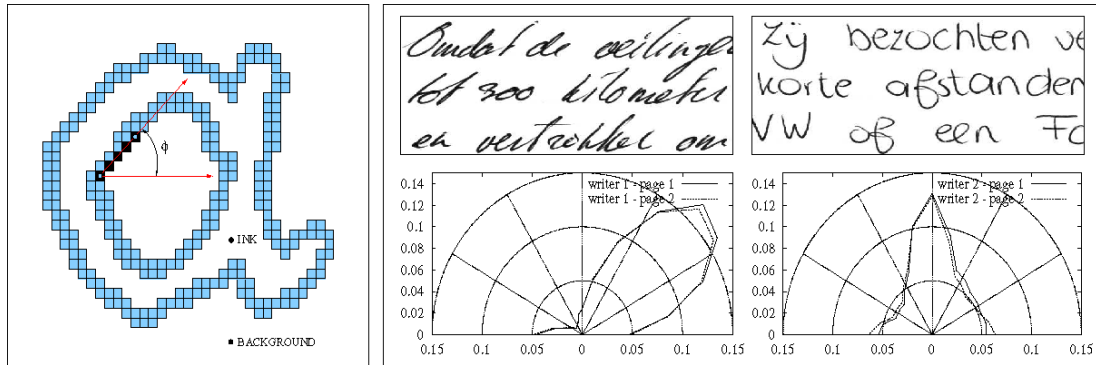 ϕ
INK
BACKGROUND
Omdat de veilingen
tot 300 kilometer
en vertrokken om
Zij bezochten ve
korte afstanden
VW of een Fo
writer 1 - page 1
writer 1 - page 2
0.14
0.12
0.1
0.08
0.06
0.04
0.02
0
0.15 0.1 0.05 0 0.05 0.1 0.15
writer 2 - page 1
writer 2 - page 2
0.14
0.12
0.1
0.08
0.06
0.04
0.02
0
0.15 0.1 0.05 0 0.05 0.1 0.15